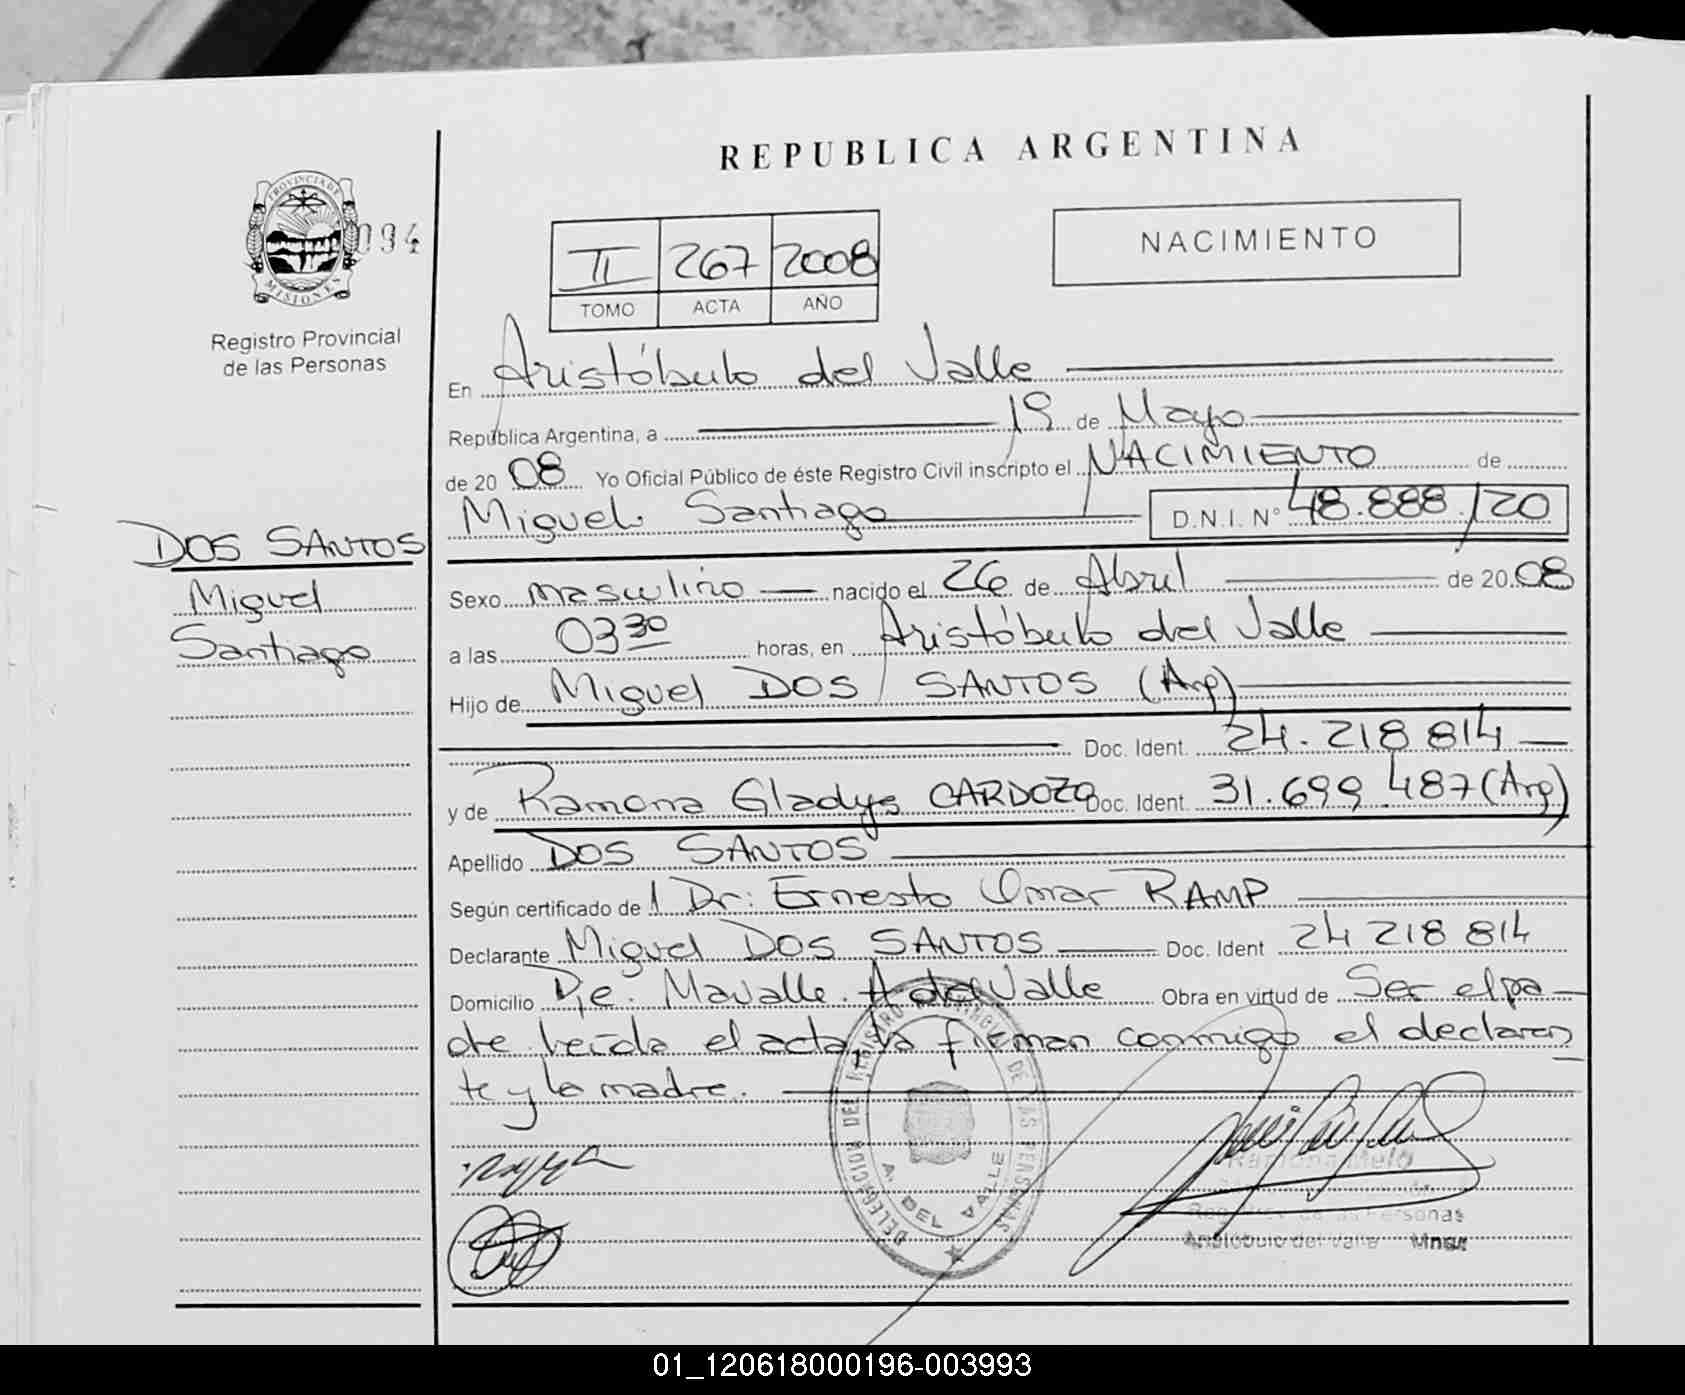 REPUBLICA ARGENTINA
PROVINCIA DE
MISIONES
094
Registro Provincial
de las Personas
II 267 2008
TOMO ACTA AÑO
NACIMIENTO
En Aristóbulo del Valle
República Argentina, a 19 de Mayo
de 2008 Yo Oficial Público de éste Registro Civil inscripto el NACIMIENTO de
Miguel Santiago D.N.I. Nº 48.888.120
DOS SANTOS
Miguel
Santiago
Sexo masculino nacido el 26 de Abril de 2008
a las 03 30 horas, en Aristóbulo del Valle
Hijo de Miguel DOS SANTOS (Arg)
Doc. Ident. 24.218 814
y de Ramona Gladys CARDOZO Doc. Ident. 31.699.487 (Arg)
Apellido DOS SANTOS
Según certificado de l Dr: Ernesto Omar RAMP
Declarante Miguel DOS SANTOS Doc. Ident 24 218 814
Domicilio Pje. Mavalle. A del Valle Obra en virtud de Ser el pa
dre leída el acta, la firman conmigo el declaran
te y la madre.
DELEGACION DEL REGISTRO PROVINCIAL DE LAS PERSONAS
A. DEL VALLE
Ramona Melo
Registro de las Personas
Aristóbulo del Valle Mnes.
01_120618000196-003993